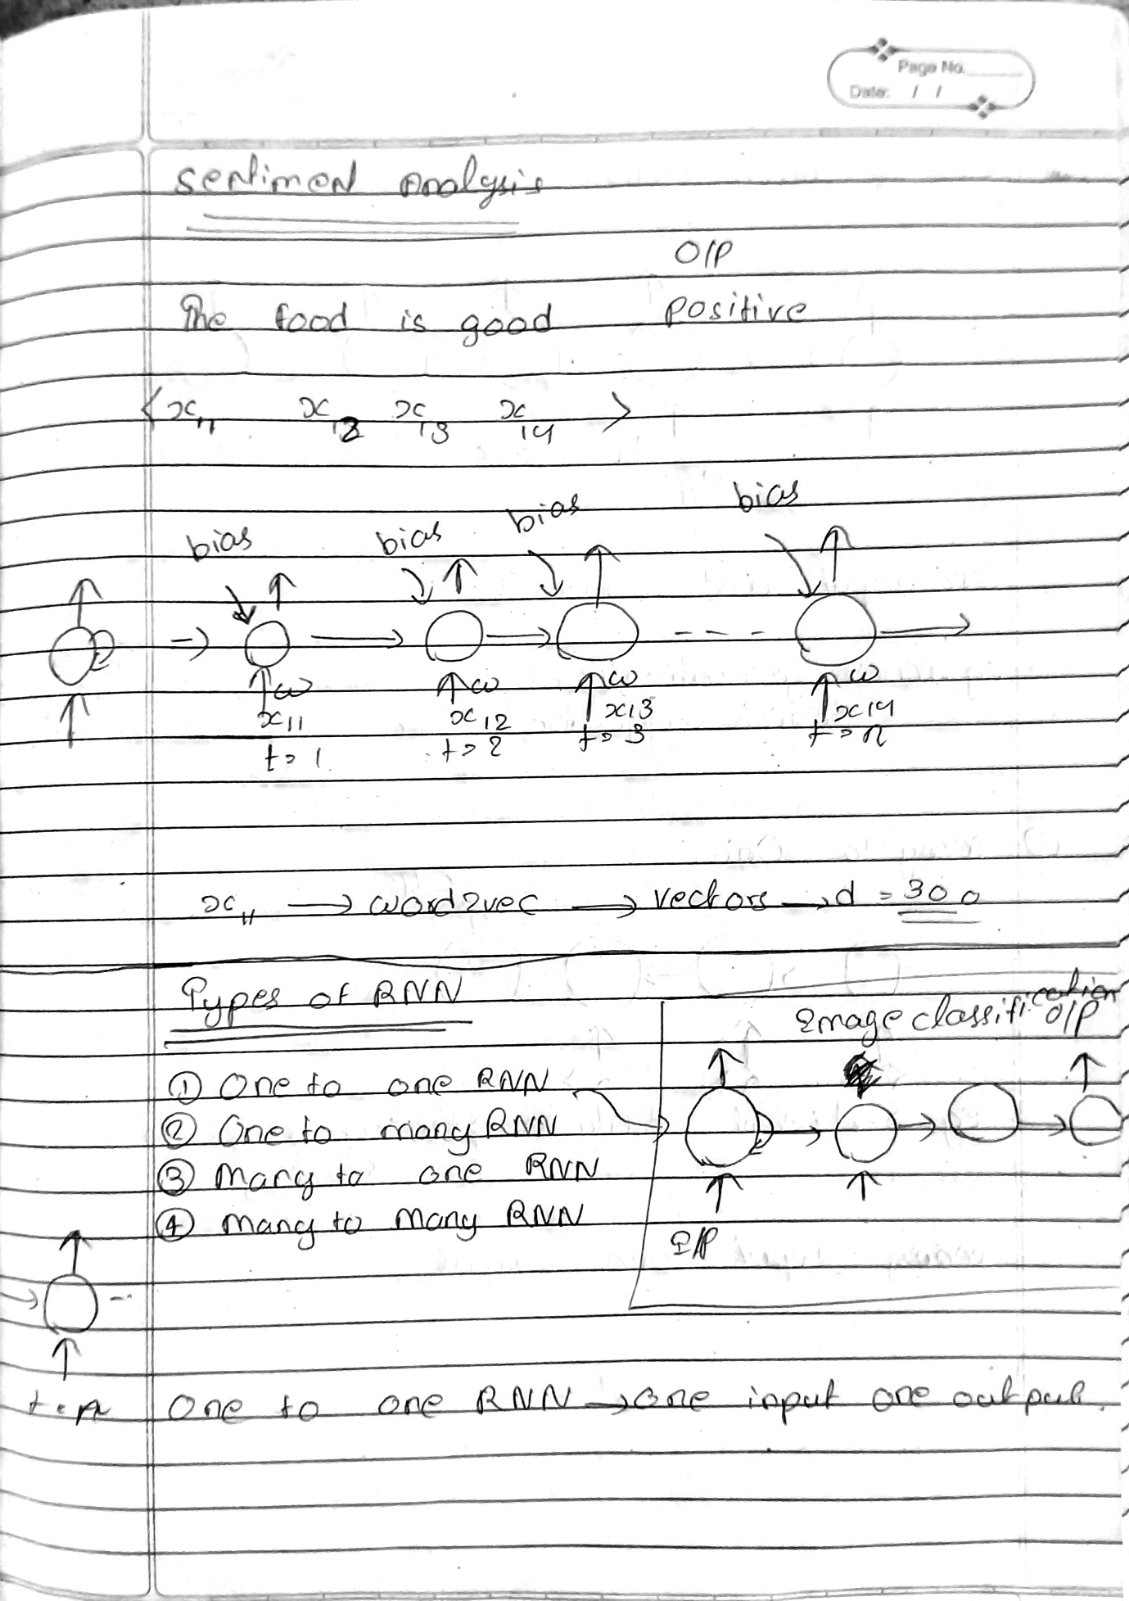 Page No.
Date: / /
Sentiment Analysis
O/P
The food is good positive
< x11 x12 x13 x14 >
bias bias bias bias
w w w w
x11 x12 x13 x14
t=1 t=2 t=3 t=n
x11 → word2vec → vectors → d = 300
Types of RNN
Image classification
O/P
① One to one RNN
② One to many RNN
③ Many to one RNN
④ Many to Many RNN
I/P
t=n
One to one RNN → one input one output.